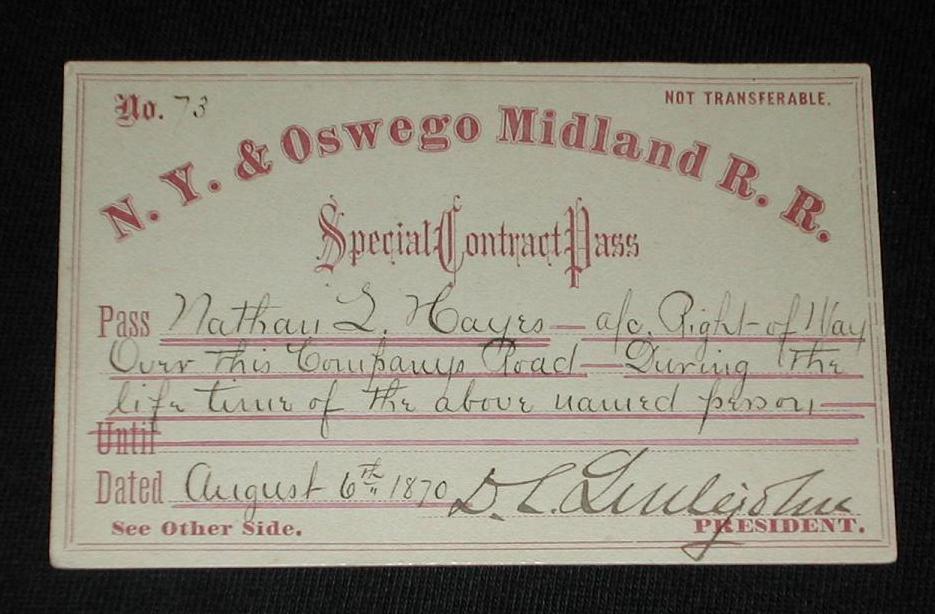 No. 73
NOT TRANSFERABLE.
N. Y. & Oswego Midland R. R.
Special Contract Pass
Pass Nathan L. Hayes — a/c. Right of Way
Over this Companys Road — During the
life time of the above named person —
Until
Dated August 6th 1870 D. C. Littlejohn
See Other Side.
PRESIDENT.